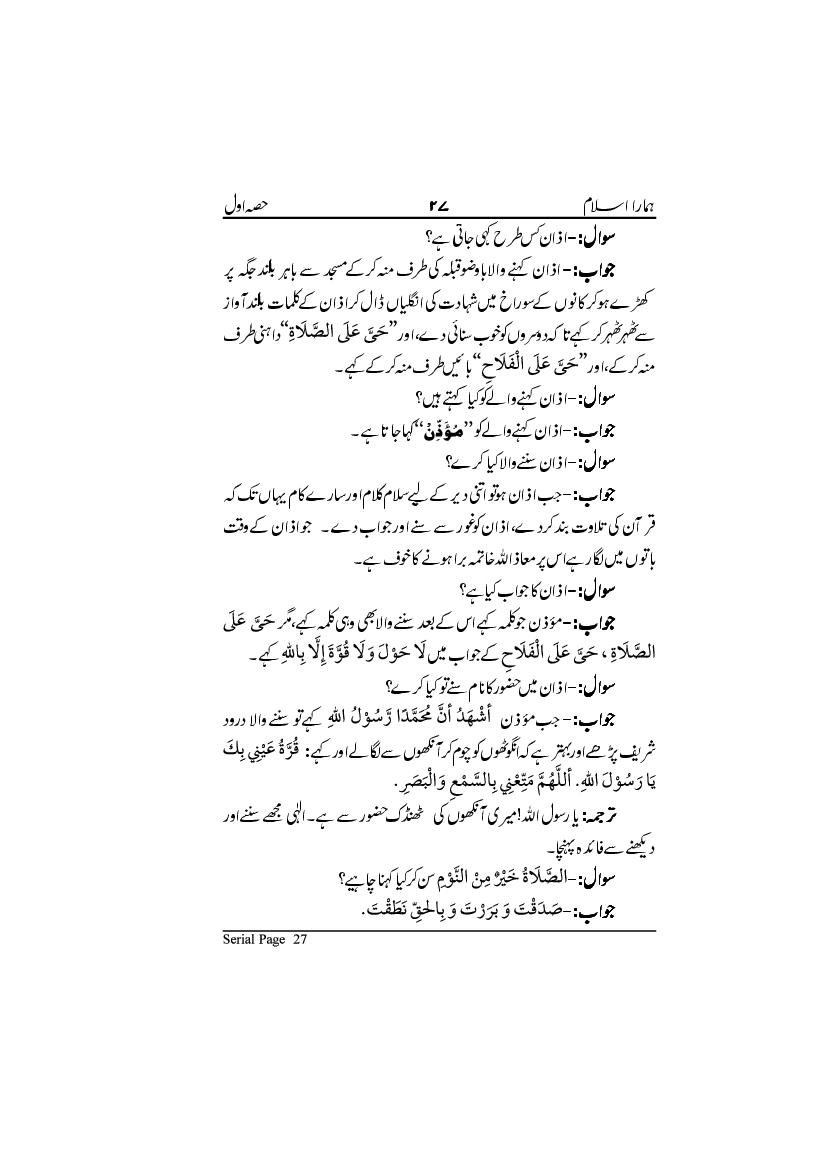 ہمارا اسلام ۲۷ حصہ اول
سوال:- اذان کس طرح کہی جاتی ہے؟
جواب:- اذان کہنے والا باوضو قبلہ کی طرف منہ کر کے مسجد سے باہر بلند جگہ پر
کھڑے ہو کر کانوں کے سوراخ میں شہادت کی انگلیاں ڈال کر اذان کے کلمات بلند آواز
سے ٹھہر ٹھہر کر کہے تاکہ دوسروں کو خوب سنائی دے، اور ”حَیَّ عَلَی الصَّلَاۃِ“ داہنی طرف
منہ کر کے، اور ”حَیَّ عَلَی الْفَلَاحِ“ بائیں طرف منہ کر کے کہے۔
سوال:- اذان کہنے والے کو کیا کہتے ہیں؟
جواب:- اذان کہنے والے کو ”مُؤَذِّنْ“ کہا جاتا ہے۔
سوال:- اذان سننے والا کیا کرے؟
جواب:- جب اذان ہو تو اتنی دیر کے لیے سلام کلام اور سارے کام یہاں تک کہ
قرآن کی تلاوت بند کر دے، اذان کو غور سے سنے اور جواب دے۔ جو اذان کے وقت
باتوں میں لگا رہے اس پر معاذ اللہ خاتمہ برا ہونے کا خوف ہے۔
سوال:- اذان کا جواب کیا ہے؟
جواب:- مؤذن جو کلمہ کہے اس کے بعد سننے والا بھی وہی کلمہ کہے، مگر حَیَّ عَلَی
الصَّلَاۃِ ، حَیَّ عَلَی الْفَلَاحِ کے جواب میں لَا حَوْلَ وَلَا قُوَّۃَ إِلَّا بِاللهِ کہے۔
سوال:- اذان میں حضور کا نام سنے تو کیا کرے؟
جواب:- جب مؤذن أَشْهَدُ أَنَّ مُحَمَّدًا رَّسُوْلُ اللهِ کہے تو سننے والا درود
شریف پڑھے اور بہتر ہے کہ انگوٹھوں کو چوم کر آنکھوں سے لگا لے اور کہے: قُرَّةُ عَيْنِي بِكَ
يَا رَسُوْلَ اللهِ. أَللَّهُمَّ مَتِّعْنِي بِالسَّمْعِ وَالْبَصَرِ.
ترجمہ: یا رسول اللہ! میری آنکھوں کی ٹھنڈک حضور سے ہے۔ الٰہی مجھے سننے اور
دیکھنے سے فائدہ پہنچا۔
سوال:- الصَّلَاۃُ خَیْرٌ مِنَ النَّوْمِ سن کر کیا کہنا چاہیے؟
جواب:- صَدَقْتَ وَ بَرَرْتَ وَ بِالْحَقِّ نَطَقْتَ.
Serial Page 27